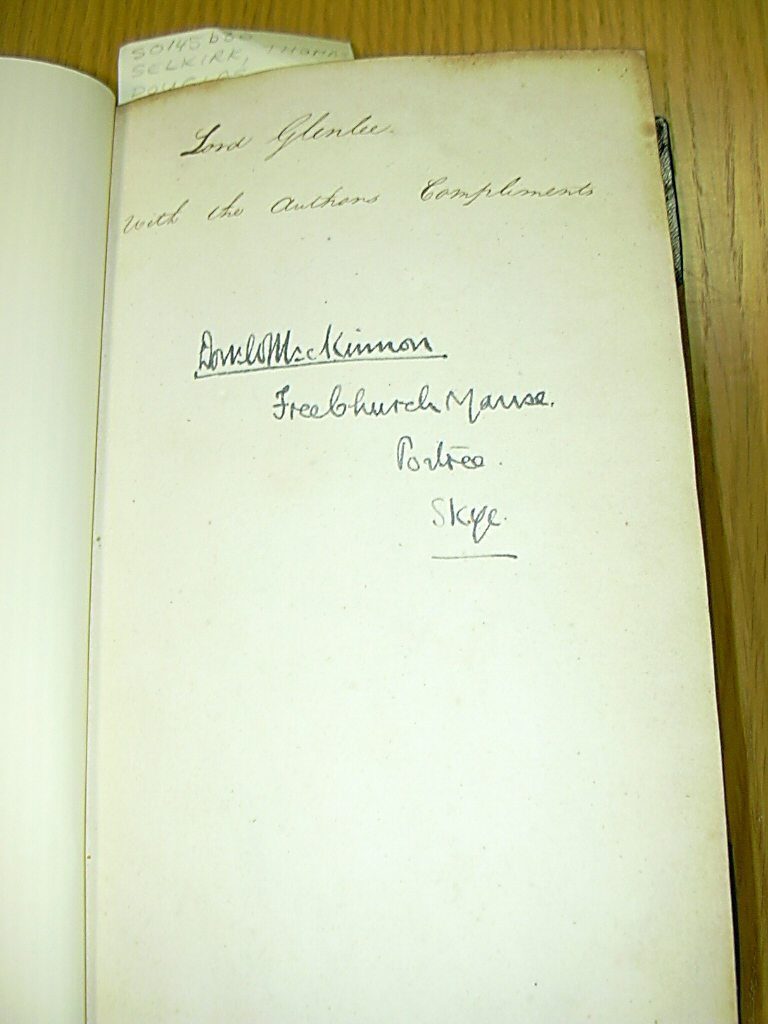 S0145b30
SELKIRK, THOMAS
DOUGLAS
Lord Glenlee.
with the Authors Compliments
Donald MacKinnon
Free Church Manse.
Portree.
Skye.